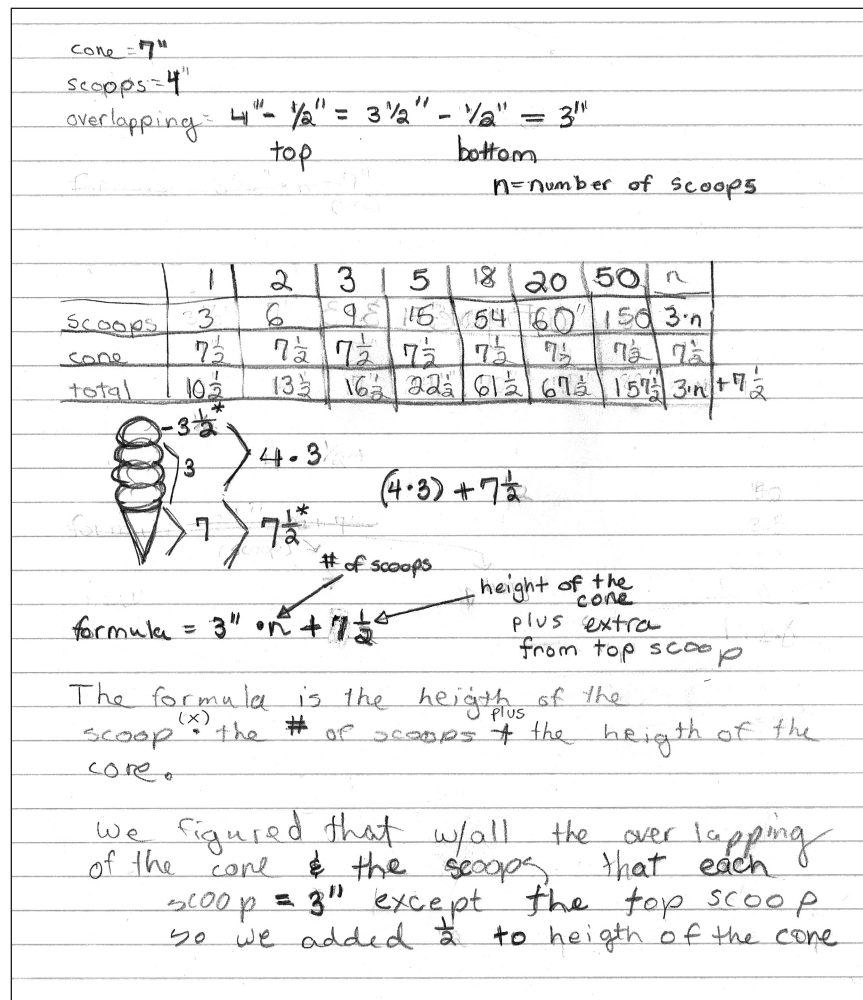 cone = 7"
scoops = 4"
overlapping = 4" - 1/2" = 3 1/2" - 1/2" = 3"
top bottom
n = number of scoops
1 2 3 5 18 20 50 n
scoops 3 6 9 15 54 60" 150 3·n
cone 7 1/2 7 1/2 7 1/2 7 1/2 7 1/2 7 1/2 7 1/2 7 1/2
total 10 1/2 13 1/2 16 1/2 22 1/2 61 1/2 67 1/2 157 1/2 3·n + 7 1/2
- 3 1/2*
3
4 · 3
(4·3) + 7 1/2
7
7 1/2*
# of scoops
height of the
cone
plus extra
from top scoop
formula = 3" · n + 7 1/2
The formula is the heigth of the
scoop (x) · the # of scoops plus + the heigth of the
cone.
We figured that w/all the over lapping
of the cone & the scoops that each
scoop = 3" except the top scoop
so we added 1/2 to heigth of the cone